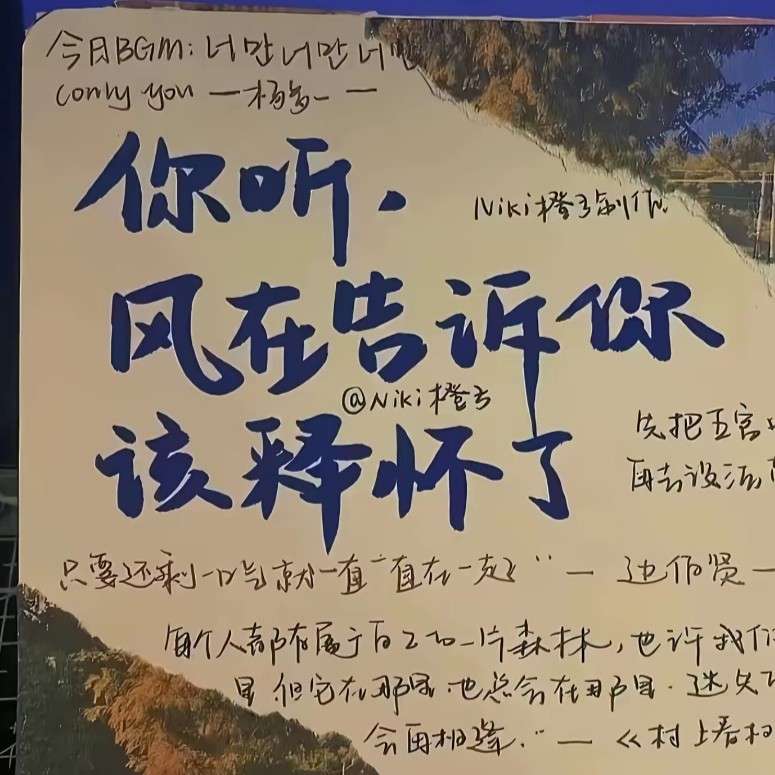 今日BGM:너만너만너만
(only you 一杨多一一
你听.
Niki橙子制作
风在告诉你
@Niki橙子
该释怀了
先把五官
再去设法
只要还剩一口气就一直一直在一起” — 边伯贤 —
每个人都有属于自己的一片森林,也许我们
里 但它在那里.也总会在那里.迷失
会再相逢.” — 《村上春树